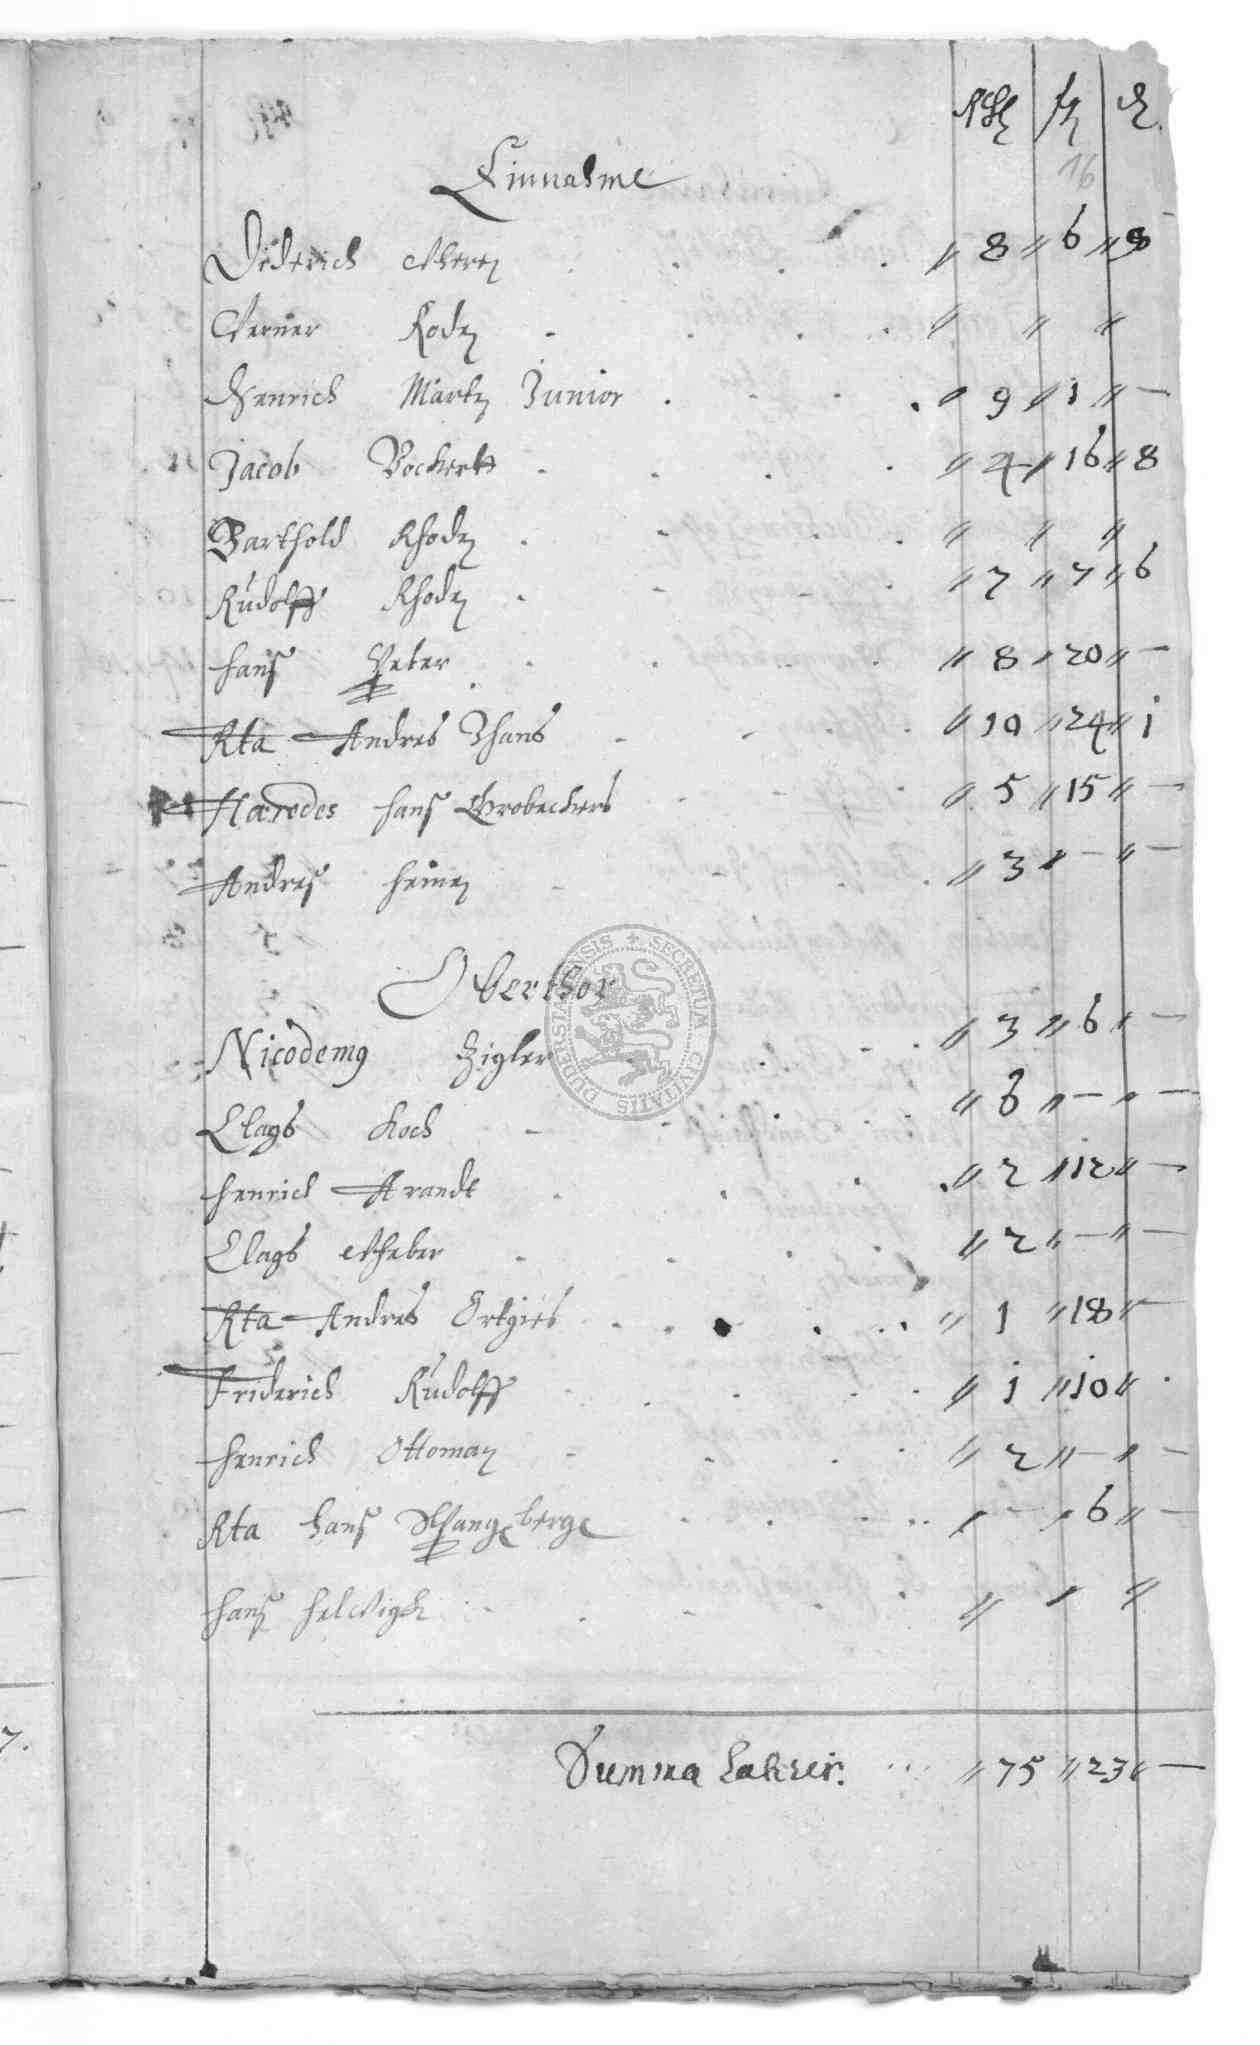 Rthl ßl d.
16
Einnahme
Diderich Wheren . . . . " 8 " 6 " 8
Werner Roden - . . . " " "
Henrich Marten Junior . . . . " 9 " 1 " —
Jacob Bockert . . . . " 4 " 16 " 8
Barthold Rhoden . . . . " " "
Rudolff Rhoden . . . . " 7 " 7 " 6
Hanß Veter . . . . " 8 " 20 " —
Rta Andres Jhans . . . . " 10 " 24 " 1
Hæredes Hanß Grobeckers . . . . " 5 " 15 " —
Andreß Heinen . . . . " 3 " — " —
Oberthor
Nicodemg Zigler . . . . " 3 " 6 " —
Clags Koch . . . . " 6 " — " —
Henrich Arandt . . . . " 2 " 12 " —
Clags Wheber . . . . " 2 " — " —
Rta Andres Ortgies . . . . " 1 " 18 " —
Friderich Rudolff . . . . " 1 " 10 " .
Henrich Ottoman . . . . " 2 " — " —
Rta Hanß berge . . . . " — " 6 " —
Hanß Helwigh . . . . " " "
Summa Lateris. . . . " 75 " 23 " —
7.
SECRETUM CIVITATIS DUDERSTADENSIS